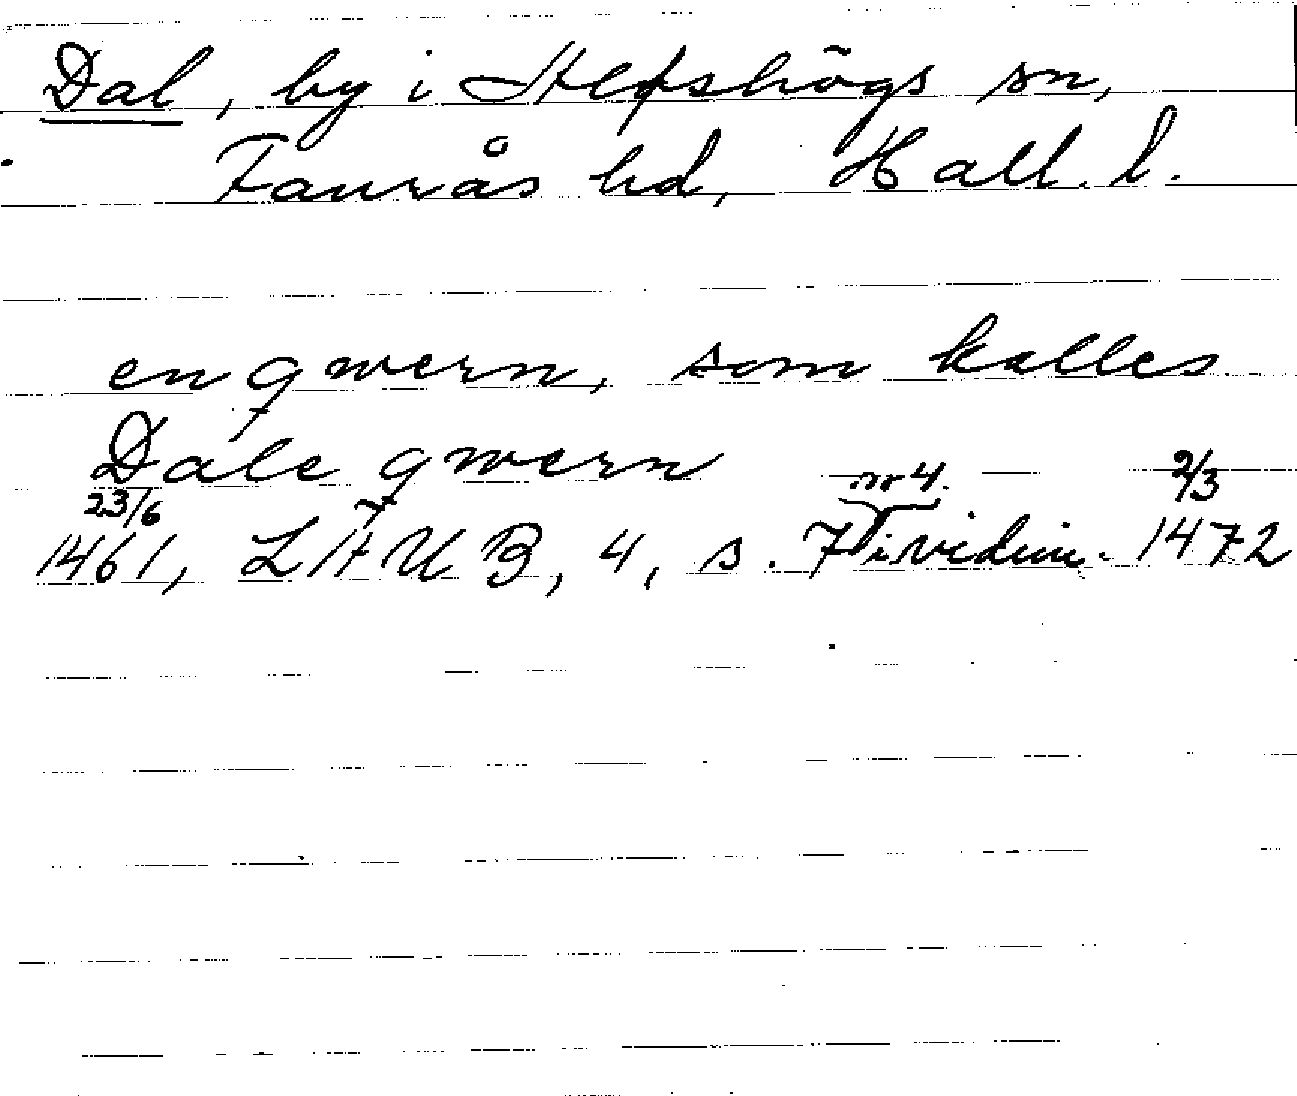 Dal, by i Alfshögs sn,
Faurås hd, Hall. l.
en qwern, som kalles
Dale qwern
23/6 nr 4. 2/3
1461, LÄUB, 4, s. 7 i vidim. 1472